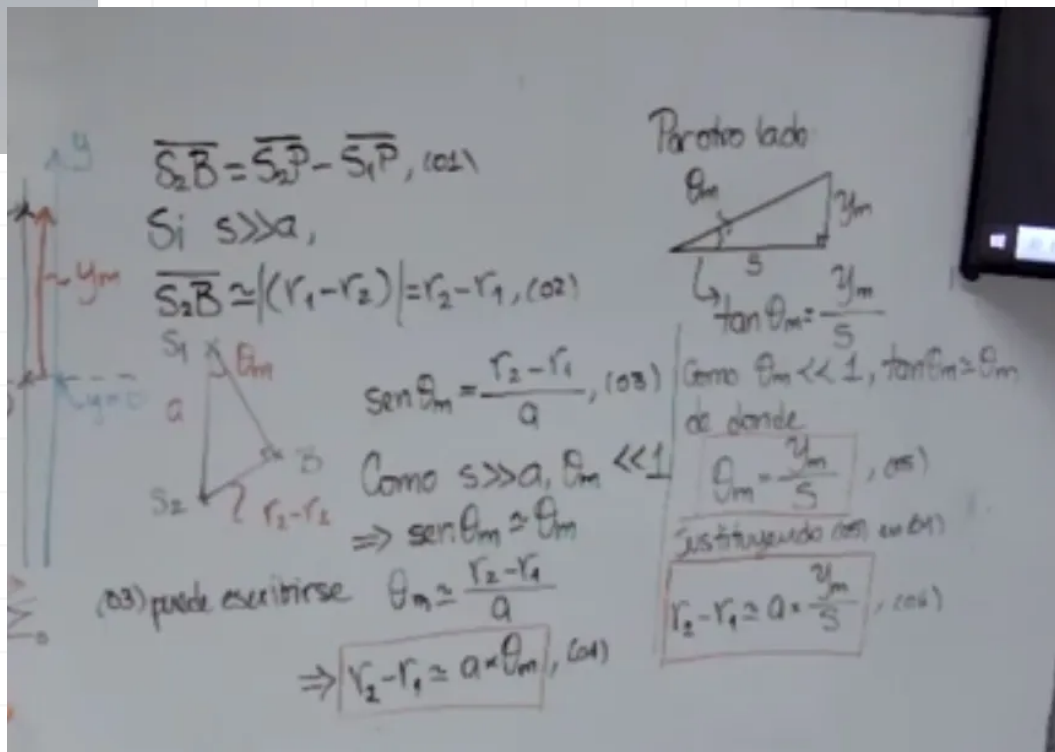 y
S₂B̅ = S₂P̅ - S₁P̅, (01)
Si s>>a,
S₂B̅ ≃ |(r₁-r₂)| = r₂-r₁, (02)
ym
y=0
S₁
θm
a
S₂
B
sen θm = (r₂-r₁)/a, (03)
Como s>>a, θm <<1
⇒ sen θm ≃ θm
(03) puede escribirse θm ≃ (r₂-r₁)/a
⇒ r₂-r₁ ≃ a*θm, (04)
Por otro lado
θm
ym
s
tan θm = ym/s
Como θm <<1, tan θm ≃ θm
de donde
θm = ym/s, (05)
sustituyendo (05) en (04)
r₂-r₁ ≃ a * ym/s, (06)